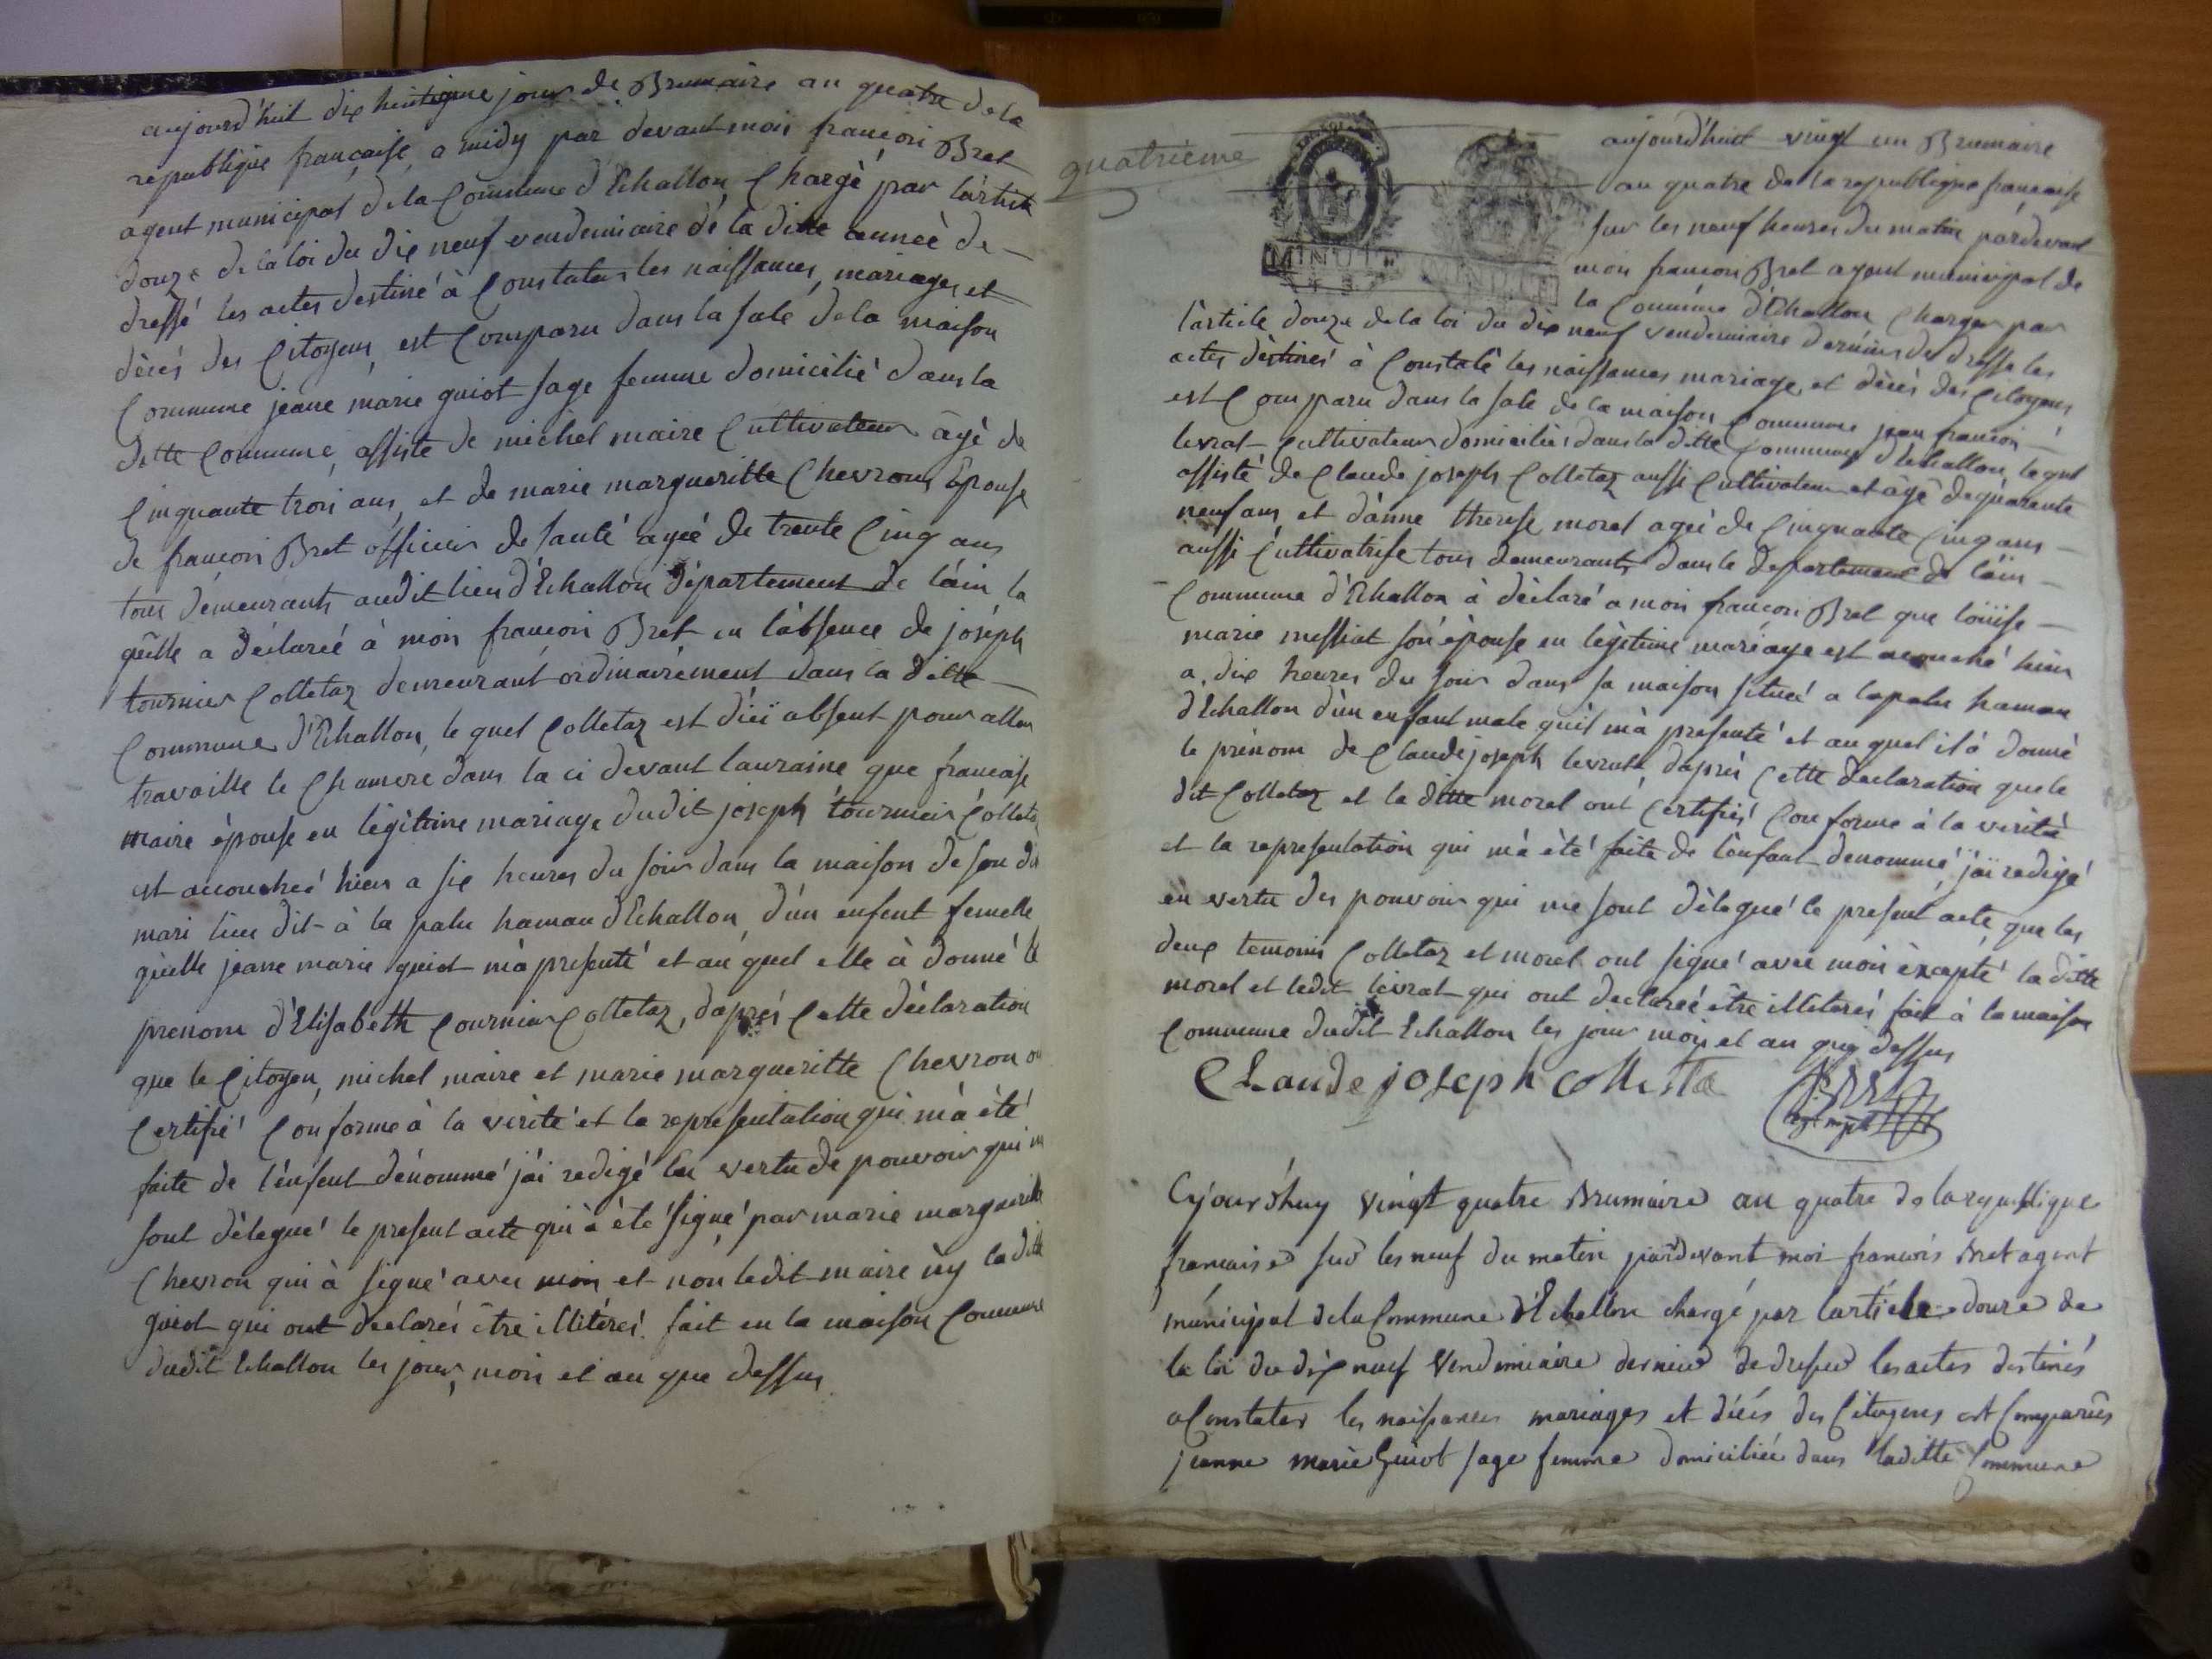 aujourd'huit dix huitieme jour de Brumaire an quatre de la
republique française, a midy par devant moi françois Bret
agent municipal de la Commune d'Echallon Chargé par l'article
douze de la loi du dix neuf vendemiaire de la ditte année de
dressé les actes destiné à Constater les naissances, mariages et
décés des Citoyens, est Comparu dans la sale de la maison
Commune jeane marie guiot sage femme domicilié dans la
ditte Commune, assisté de michel maire Cultivateur âgé de
Cinquante trois ans, et de marie margueritte Chevron Epouse
de françois Bret officier de santé agée de trente Cinq ans
tous demeurants audit lieu d'Echallon département de l'ain la
quelle a déclarée à moi françois Bret en l'absence de joséph
tournier Colletaz demeurant ordinairement dans la ditte
Commune d'Echallon, le quel Colletaz est d'ici absent pour aller
travaille le Chamvre dans la ci devant lauraine que francaise
maire épouse en légitime mariage dudit joseph tournier Colletaz
est accouchée hier a six heures du soir dans la maison de son dit
mari lieu dit à la palu hamau d'Echallon, d'un enfent femelle
quelle jeane marie guiot m'à presenté et au quel elle à donné le
prenom d'Elisabeth tournier Colletaz, d'aprés Cette déclaration
que le Citoyen, michel maire et marie margueritte Chevron on
Certifié Conforme à la verité et la representation qui m'à été
faite de l'enfent dénommé j'ai redigé en vertu de pouvoir qui me
sont délegué le present acte qui à été signé par marie margueritte
Chevron qui à signé avec moi et non ledit maire ny la ditte
guiot qui ont declarés être illiterés. fait en la maison Commune
dudit Echallon les jour, mois et an que dessus
quatrieme
MINUTE
MINUTE
aujourd'huit vingt un Brumaire
an quatre de la republique francaise
sur les neuf heures du matin pardevant
moi francois Bret agent municipal de
la Commune d'Echallon Charger par
l'article douze de la loi du dix neuf vendemiaire derniers de dresse les
actes déstinés à Constaté les naissances mariage, et décés des Citoyens
est Comparu dans la sale de la maison Commune jean francois
levrat Cultivateur domiciliés dans la ditte Commune d'Echallon le quel
assisté de Claude joseph Colletaz aussi Cultivateur et âgé de quarente
neuf ans, et d'anne therese morel ageé de Cinquante Cinq ans
aussi Cultivatrise tous demeurants dans le departement de l'ain
Commune d'Echallon à déclaré a moi francois Bret que loüise
marie messiat son épouse en légitime mariage est acouché hier
a dix heures du soir dans sa maison situeé a lapalu hamau
d'Echallon d'un enfant male quil m'à presenté et au quel il à donné
le prénom de Claude joseph levrat d'aprés Cette declaration que le
dit Colletaz et la ditte morel ont Certifiés Conforme à la verité
et la representation qui m'à été faite de l'enfant denommé, j'ai redigé
en vertu des pouvoirs qui me sont délegué le present acte que les
deux temoins Colletaz et morel ont signé avec moi éxcepté la ditte
morel et ledit levrat qui ont declareé être illiterés fait à la maison
Commune dudit Echallon les jour mois et an que dessus
CLaude joseph colleta
Bret
agt mpal
Cejourd'huy vingt quatre Brumaire an quatre de la republique
francaise sur les neuf du matin pardevant moi francois Bret agent
municipal de la Commune d'Echallon chargé par l'article douze de
la loi du dix neuf Vendemiaire dernier de dresser les actes destinés
a Constater les naissances mariages et décés des Citoyens est Comparües
jeanne marie Guiot sage femme domiciliée dans laditte Commune